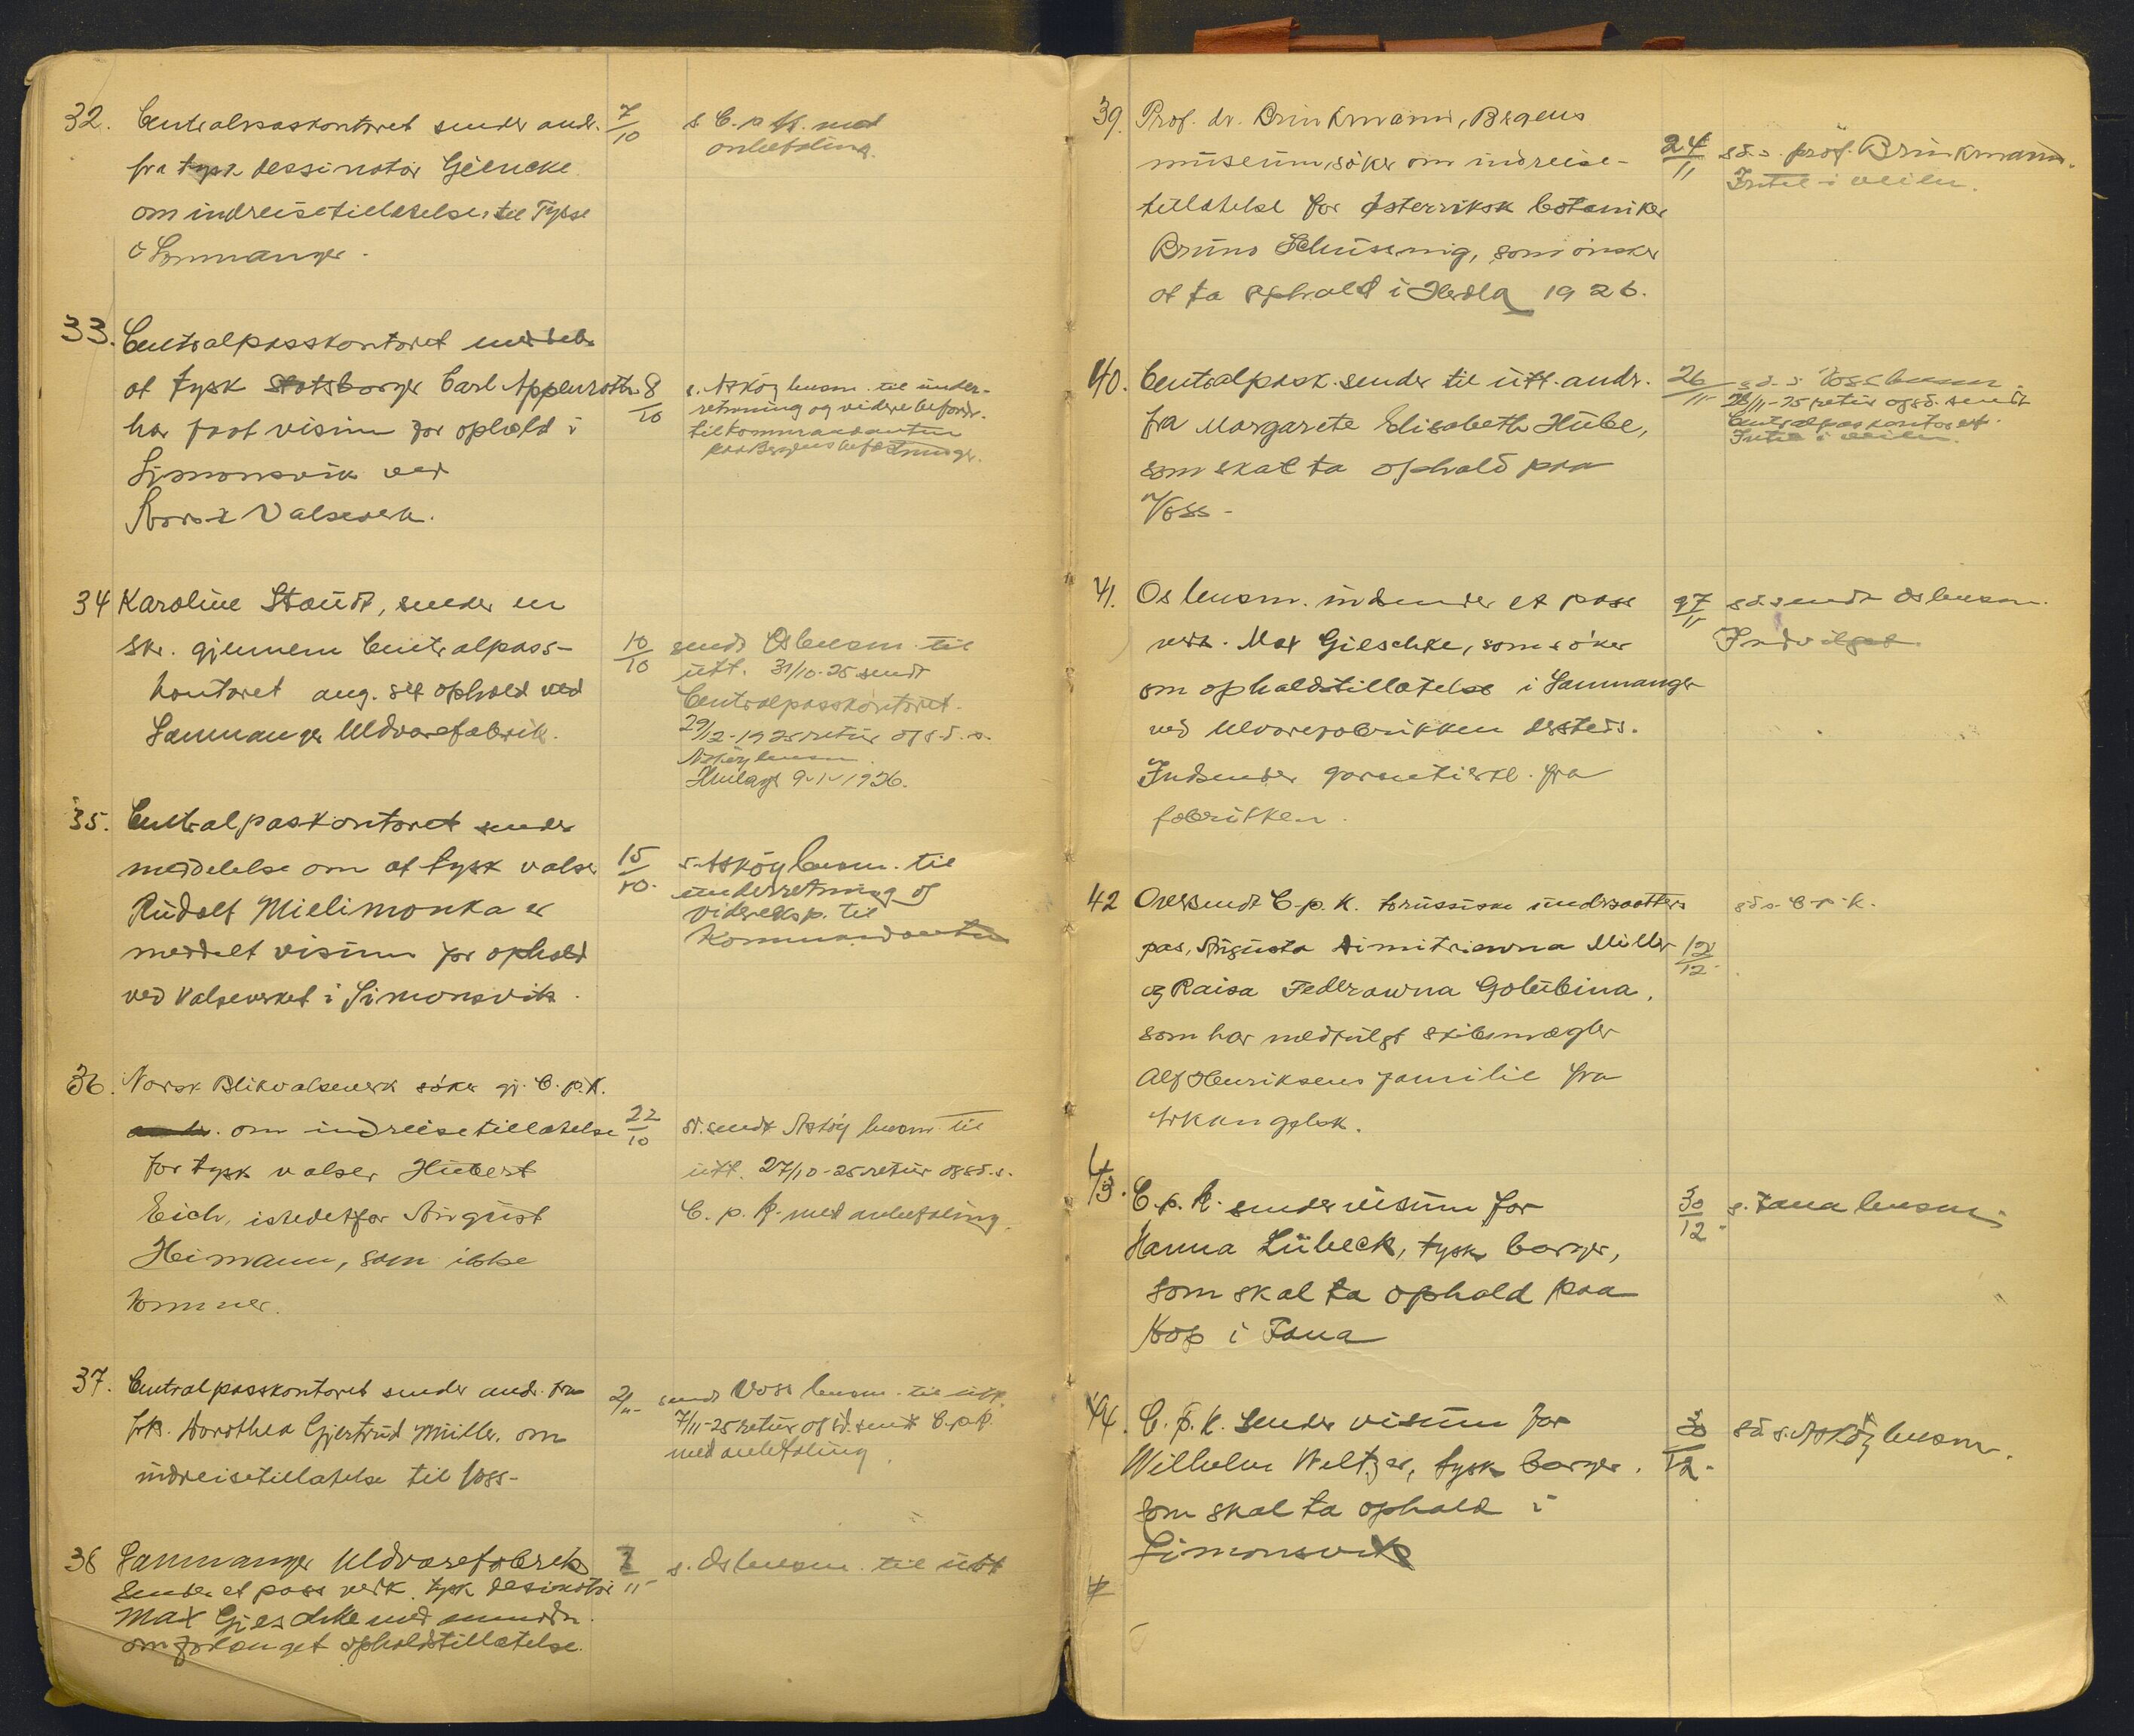 32. Centralpaskontoret sender andr. 7/10 s. C.p.k. med
anbefaling.
fra tysk dessinatør
om indreisetillatelse til
Samnanger.
33. Centralpasskontoret meddeler
at tysk statsborger Carl Appenroth 8/10 s. Askøy lensm. til under-
har faat visum for ophold i retning og videre befordr.
til kommandanten
paa Bergens befæstninger.
Simonsvik ved
Norsk Valseverk.
34 Karoline Staudt, sender en
skr. gjennem Centralpass- 10/10 sendt Os lensm. til
utt. 31/10-25 sendt
kontoret ang. sit ophold ved Centralpasskontoret.
Samnanger Uldvarefabrik. 29/12-1925 retur og s.d. s.
Askøy lensm.
Henlagt 9-1-1926.
35. Centralpaskontoret sender
meddelelse om at tysk valser 15/10. s. Askøy lensm. til
underretning og
Rudolf Mielimonka er videreeksp. til
Kommandanten
meddelt visum for ophold
ved Valseverket i Simonsvik.
36. Norsk Blikvalseverk søker gj. C.p.k.
andr. om indreisetillatelse 22/10 sendt Askøy lensm. til
for tysk valser Hubert utt. 27/10-25 retur og s.d. s.
Eich, istedetfor August C.p.k. med anbefaling.
Heimann, som ikke
kommer.
37. Centralpasskontoret sender andr. fra 2/11- sendt Voss lensm. til utt.
frk. Dorothea Gjertrud Müller, om 7/11-25 retur og s.d. sendt C.p.k.
med anbefaling.
indreisetillatelse til Voss-
38 Samnanger Uldvarefabrik 7/11- s. Os lensm. til utt
sender et pass vedk. tysk desinatør
Max Gieschke med
om forlænget opholdstillatelse.
39. Prof. dr. Brinkmann, Bergens
museum, søker om indreise- 24/11 s.d. s. prof. Brinkmann.
Intet i veien.
tillatelse for østerriksk botaniker
Bruno Schussnig, som ønsker
at ta ophold i Herdla 1926.
40. Centralpask. sender til utt. andr. 26/11- s.d. s. Voss lensm.
28/11-25 retur og s.d. sendt
fra Margarete Elisabeth Hübe, Centralpaskontoret.
Intet i veien.
som skal ta ophold paa
Voss-
41. Os lensm. indsender et pass 27/11 s.d. sendt Os lensm.
vedk. Max Gieschke, som søker Indvilget.
om opholdstillatelse i Samnanger
ved Ulvarefabrikken dsteds.
Indsender garantierkl. fra
fabrikken.
42 Oversendt C.p.k. russiske undersaatters s.d. s. C.p.k.
pas, Augusta Dimitriewna Miller 12/12-
og Raisa Federowna Golubina,
som har medfulgt skibsmægler
Alf Henriksens familie fra
Arkangelsk.
43. C.p.k. sender visum for 30/12- s. Fana lensm.
Hanna Lübeck, tysk borger,
som skal ta ophold paa
Hop i Fana
44. C.p.k. sender visum for 30/12- s.d. s. Askøy lensm.
Wilhelm Weltzer, tysk borger,
som skal ta ophold i
Simonsvik